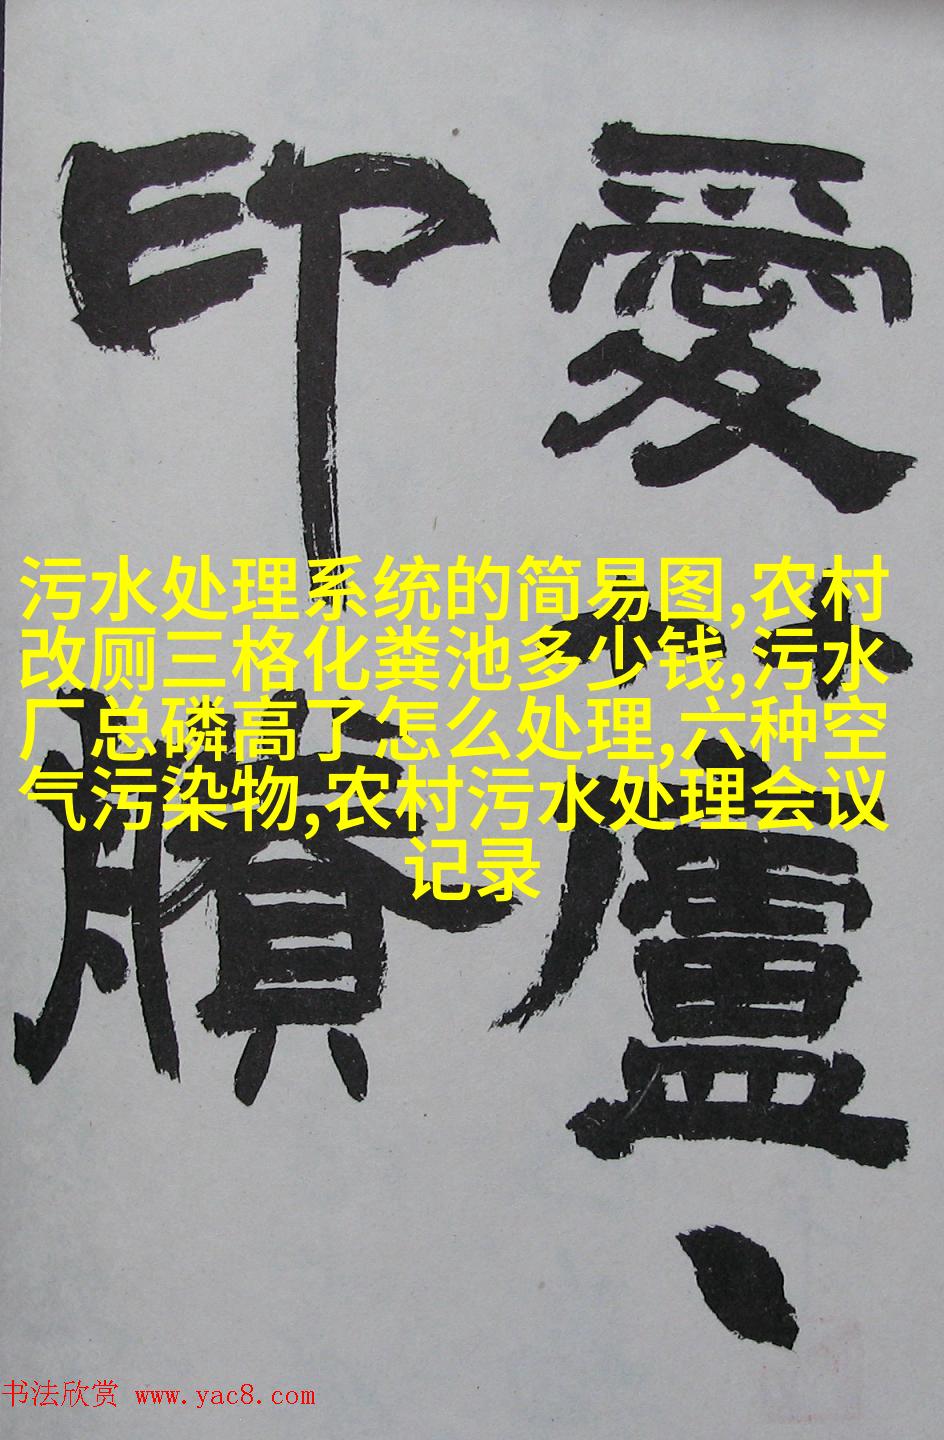 愛蘆
印賸
污水处理系统的简易图,农村
改厕三格化粪池多少钱,污水
厂总磷高了怎么处理,六种空
气污染物,农村污水处理会议
记录
书法欣赏 www.yac8.com